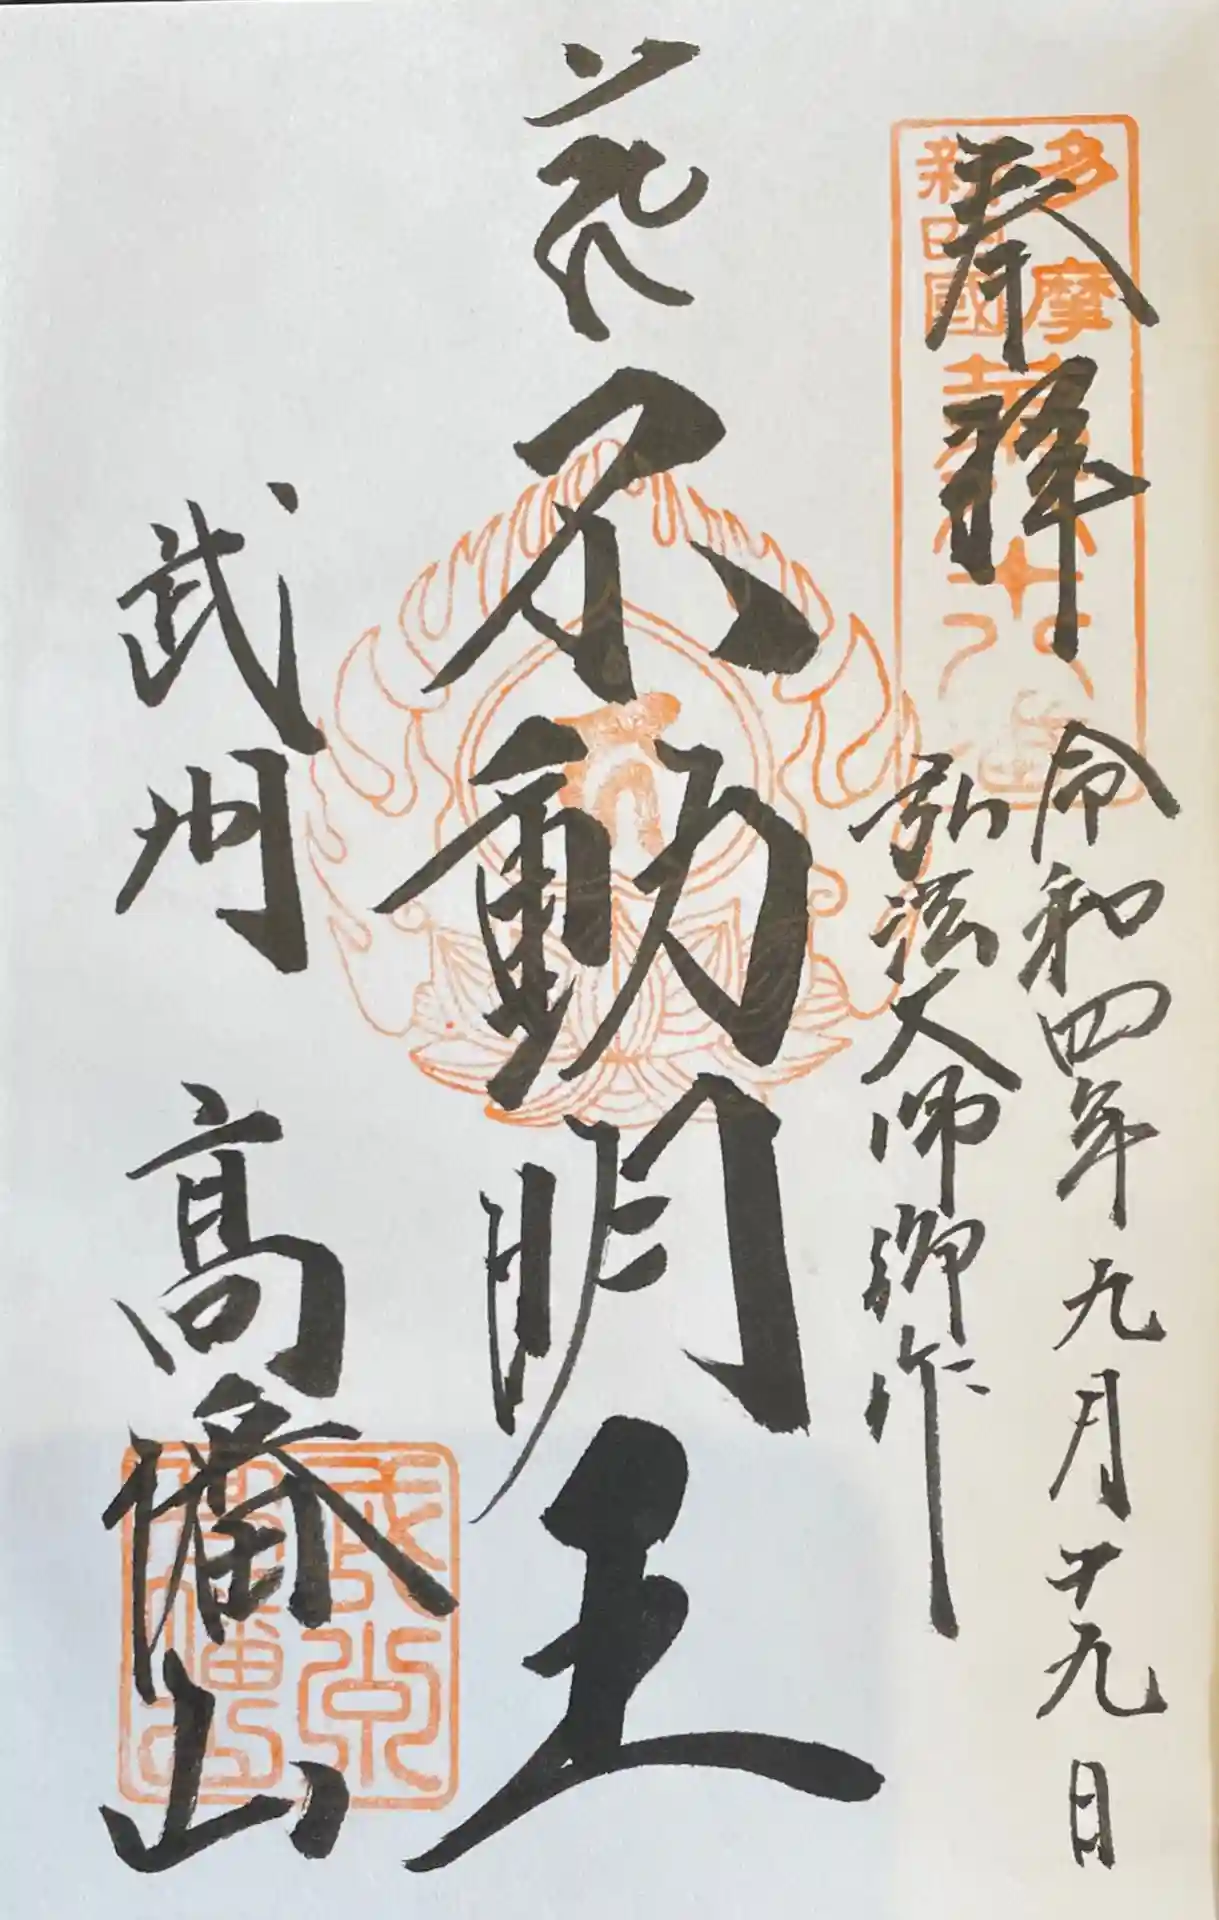 奉拝
多摩
新四國
令和四年九月十九日
弘法大师御作
不動明王
武州 高幡山